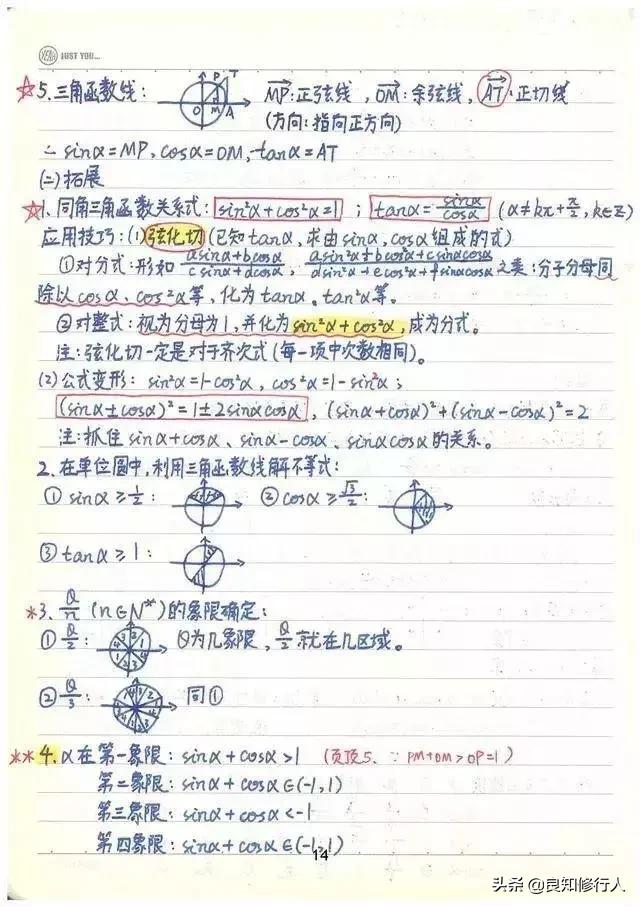 JUST YOU...
☆5.三角函数线: P T O M A MP:正弦线,OM:余弦线,AT:正切线
(方向:指向正方向)
∴ sinα=MP,cosα=OM,tanα=AT
(二)拓展
☆1.同角三角函数关系式:sin²α+cos²α=1;tanα=sinα/cosα (α≠kπ+π/2,k∈Z)
应用技巧:(1)弦化切(已知tanα,求由sinα,cosα组成的式)
①对分式:形如 (asinα+bcosα)/(csinα+dcosα),(asin²α+bcos²α+csinαcosα)/(dsin²α+ecos²α+fsinαcosα)之类:分子分母同
除以cosα、cos²α等,化为tanα。tan²α等。
②对整式:视为分母为1,并化为sin²α+cos²α,成为分式。
注:弦化切一定是对于齐次式(每一项中次数相同)。
(2)公式变形:sin²α=1-cos²α,cos²α=1-sin²α;
(sinα±cosα)²=1±2sinαcosα,(sinα+cosα)²+(sinα-cosα)²=2
注:抓住sinα+cosα、sinα-cosα、sinαcosα的关系。
2.在单位圆中,利用三角函数线解不等式:
①sinα≥1/2: ②cosα≥√3/2:
③tanα≥1:
*3. θ/n (n∈N*)的象限确定:
①θ/2: θ为几象限,θ/2就在几区域。
②θ/3: 同①
**4.α在第一象限:sinα+cosα>1 (页顶5.∵PM+OM>OP=1)
第二象限:sinα+cosα∈(-1,1)
第三象限:sinα+cosα<-1
第四象限:sinα+cosα∈(-1,1)
14
头条@良知修行人